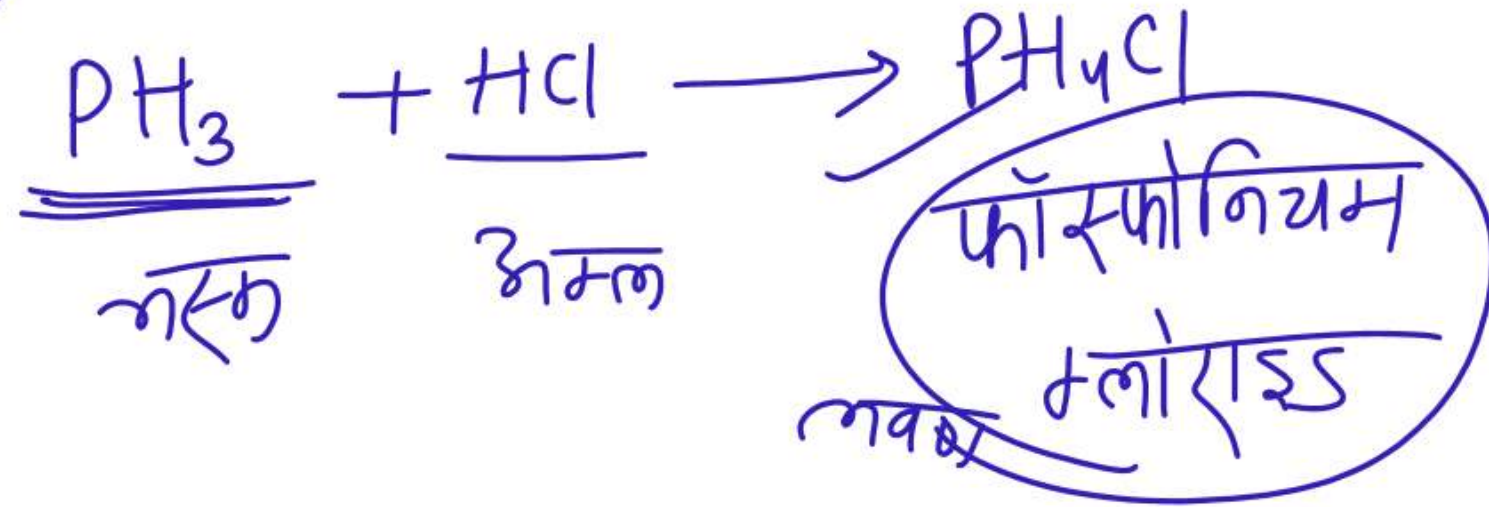 PH₃ + HCl → PH₄Cl
अम्ल फॉस्फोनियम
क्लोराइड
लवण